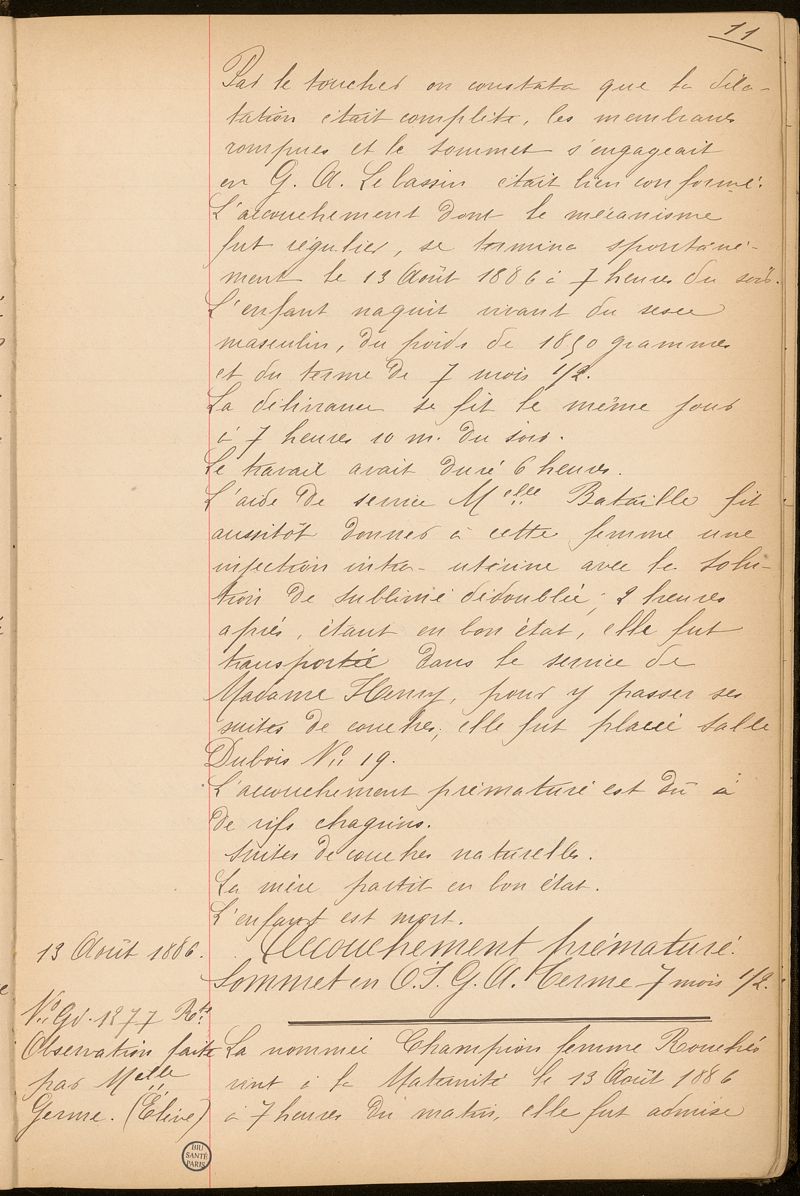 11
Par le toucher on constata que la dila-
tation était complète, les membranes
rompues et le sommet s'engageait
en G. A. Le bassin était bien conformé.
L'accouchement dont le mécanisme
fut régulier, se termina spontané-
ment le 13 Août 1886 à 7 heures du soir.
L'enfant naquit vivant du sexe
masculin, du poids de 1850 grammes
et du terme de 7 mois 1/2.
La délivrance se fit le même jour
à 7 heures 10 m. du soir.
Le travail avait duré 6 heures.
L'aide de service Melle Bataille fit
aussitôt donner à cette femme une
injection intra-utérine avec la solu-
tion de sublimé dédoublée; 2 heures
après, étant en bon état, elle fut
transportée dans le service de
Madame Henry, pour y passer ses
suites de couches; elle fut placée salle
Dubois No 19.
L'accouchement prématuré est dû à
de vifs chagrins.
Suites de couches naturelles.
La mère partit en bon état.
L'enfant est mort.
13 Août 1886.
Accouchement prématuré.
Sommet en O.I.G.A. Terme 7 mois 1/2.
No Gd. 1877 Rts
Observation faite
par Melle
Germe. (Élève)
La nommée Champion femme Rouchés
vint à la Maternité le 13 Août 1886
à 7 heures du matin, elle fut admise
BIU
SANTÉ
PARIS